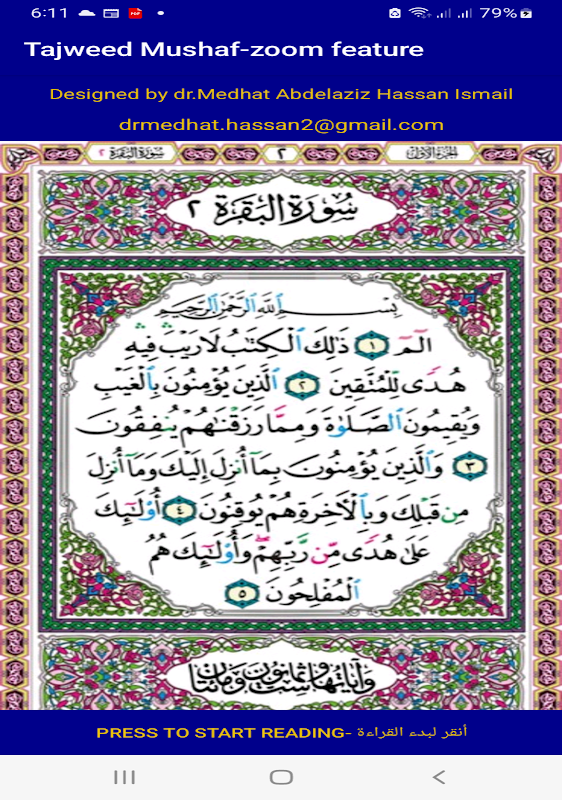 6:11 79%
Tajweed Mushaf-zoom feature
Designed by dr.Medhat Abdelaziz Hassan Ismail
drmedhat.hassan2@gmail.com
الجزء الأول ٢ سورة البقرة ٢
سُورَةُ الْبَقَرَةِ ٢
بِسْمِ ٱللَّهِ ٱلرَّحْمَٰنِ ٱلرَّحِيمِ
الٓمٓ ١ ذَٰلِكَ ٱلْكِتَٰبُ لَا رَيْبَ ۛ فِيهِ ۛ
هُدًى لِّلْمُتَّقِينَ ٢ ٱلَّذِينَ يُؤْمِنُونَ بِٱلْغَيْبِ
وَيُقِيمُونَ ٱلصَّلَوٰةَ وَمِمَّا رَزَقْنَٰهُمْ يُنفِقُونَ
٣ وَٱلَّذِينَ يُؤْمِنُونَ بِمَآ أُنزِلَ إِلَيْكَ وَمَآ أُنزِلَ
مِن قَبْلِكَ وَبِٱلْءَاخِرَةِ هُمْ يُوقِنُونَ ٤ أُو۟لَٰٓئِكَ
عَلَىٰ هُدًى مِّن رَّبِّهِمْ ۖ وَأُو۟لَٰٓئِكَ هُمُ
ٱلْمُفْلِحُونَ ٥
وآياتها ست وثمانون ومائتان
PRESS TO START READING- أنقر لبدء القراءة